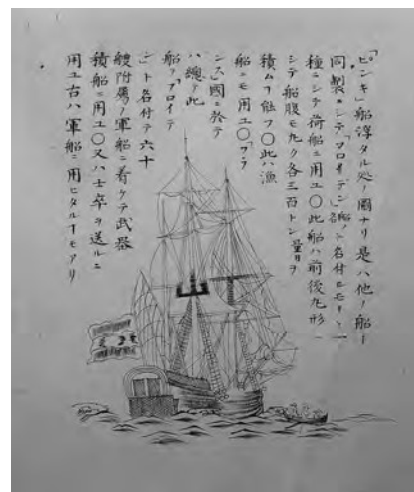 「ピンキ」船淳タル処ノ圖ナリ是ハ他ノ船ト
同製ニシテ「フロイテン」船ト名付ルモノヽ一
種ニシテ荷船ニ用ユ〇此船ハ前後丸形ニ
シテ船腹モ丸ク各三百トン量目ヲ
積ムヿ能フ〇此ハ漁
船ニモ用ユ〇フラ
ンス國ニ於テ
ハ總テ此
船ヲ「フロイテ
ン」ト名付テ六十
艘附属ノ軍船ニ着ケテ武器
積船ニ用ユ〇又ハ士卒ヲ送ルニ
用ユ古ハ軍船ニ用ヒタルヿモアリ